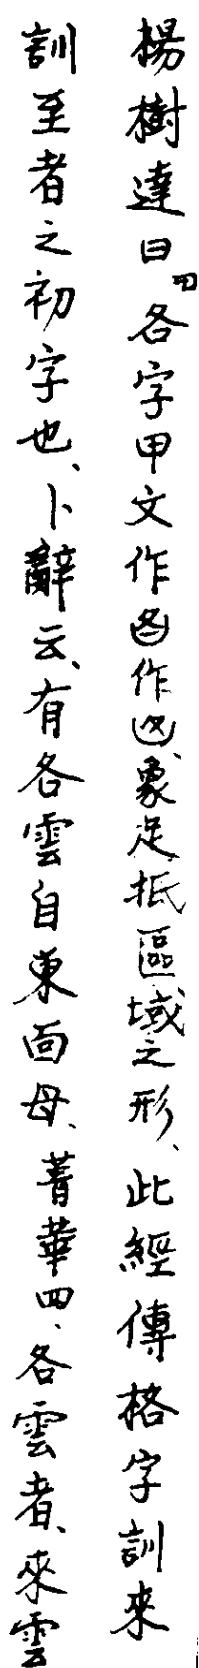 楊樹達曰「各字甲文作作象足抵區域之形、此經傳格字訓来
訓至者之初字也、卜辭云、有各雲自東面母、菁華四、各雲者、來雲